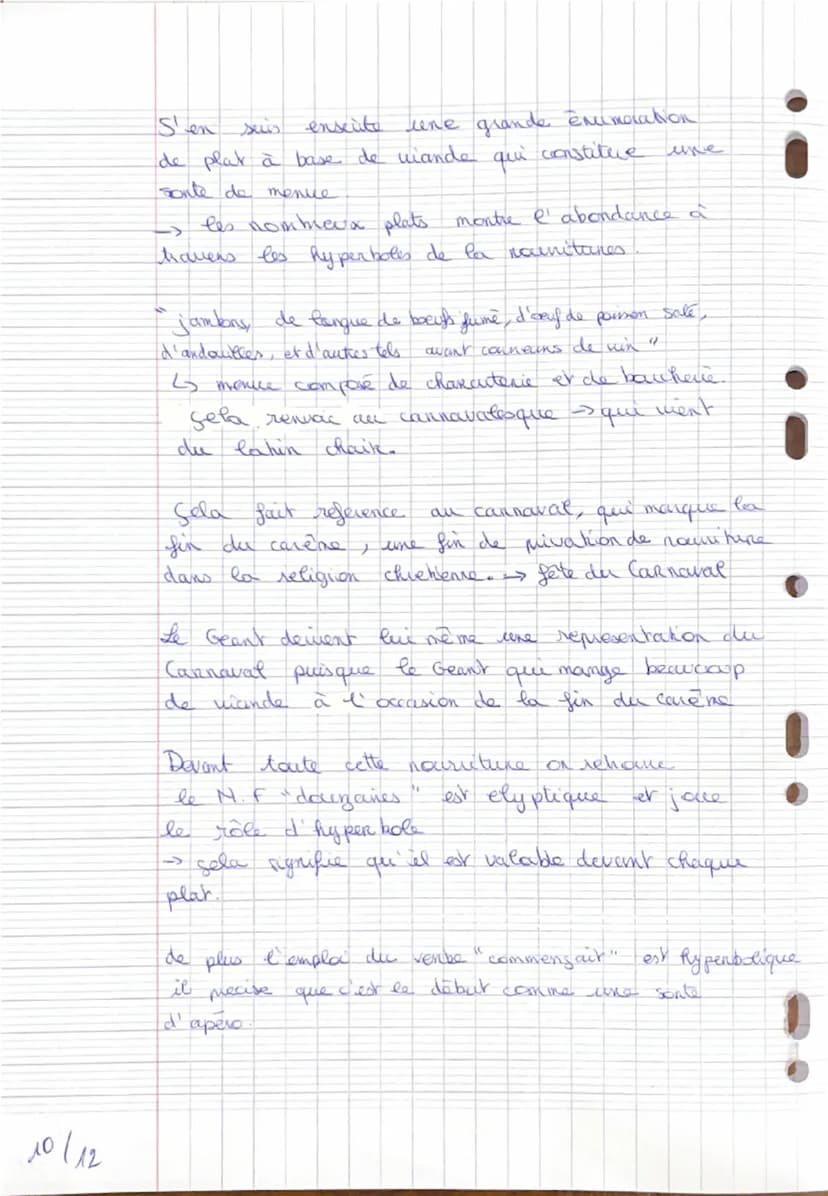 S'en suis ensuite une grande énumération
de plat à base de viande qui constitue une
sorte de menue.
→ les nombreux plats montre l'abondance à
travers les hyperboles de la nourritures.
"jambons, de langue de boeufs fumé, d'oeuf de poisson salé,
d'andouilles, et d'autres tels avant coureurs de vin"
↳ menue composé de charcuterie et de boucherie.
Çela renvoie au carnavalesque → qui vient
du latin chair.
Çela fait reference au carnaval, qui marque la
fin du carême, une fin de privation de nourriture
dans la religion chretienne. → fête du Carnaval
Le Geant devient lui même une representation du
Carnaval puisque le Geant qui mange beaucoup
de viande à l'occasion de la fin du carême
Devant toute cette nourriture on retrouve
le N.F "douzaines" est elyptique et joue
le rôle d'hyperbole
→ çela signifie qu'il est valable devant chaque
plat.
de plus l'emploi du verbe "commençait" est hyperbolique
il precise que c'est le début comme une sorte
d'apéro.
10/12